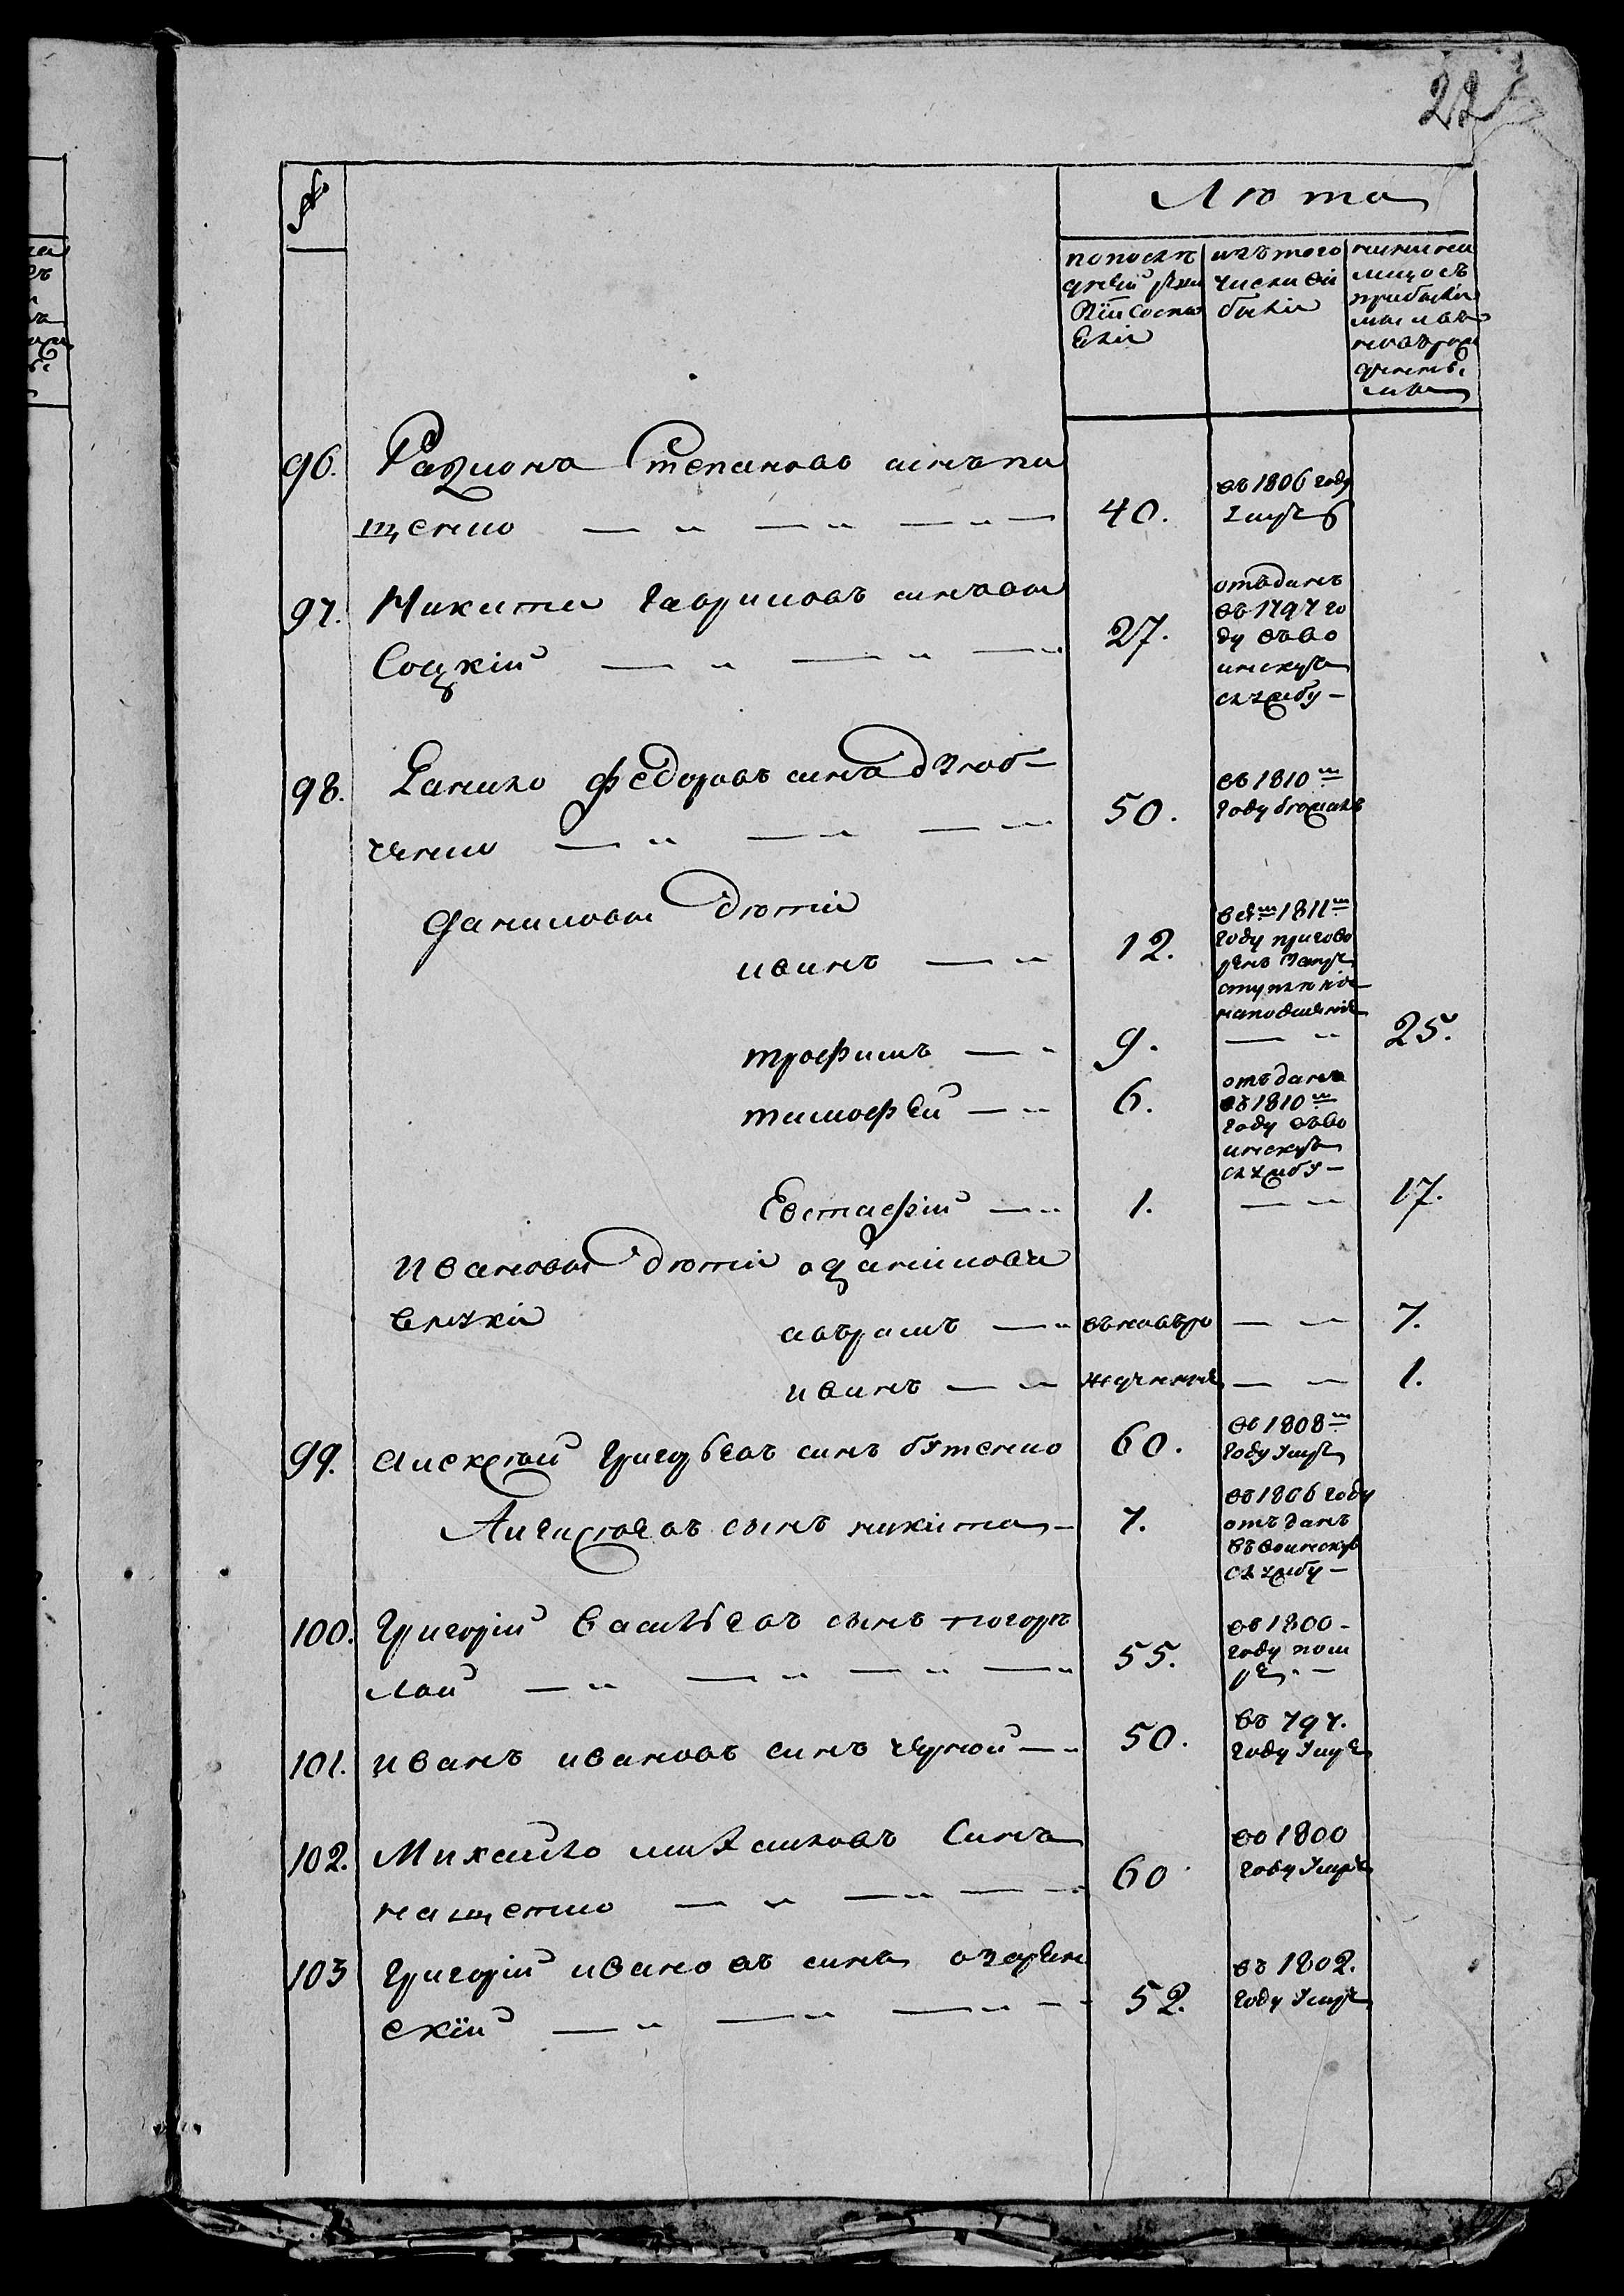 22
№
Лѣта
попослѣ
дней реви
зіи состо
яли
изъ того
числа вы
были
нынѣ на
лицо съ
прибылы
ми и въ
новь рож
денны
ми
96. Радионъ Степановъ синъ па
щенко
40.
въ 1806 году
умре
97. Микита Гавриловъ синъ вы
соцкій
27.
отъданъ
въ 1797 го
ду въ во
инскую
службу
98. Данило Федоровъ синъ дзюб
ченко
50.
въ 1810м
году бежалъ
Даниловы дѣти
иванъ
12.
1811м
году пригово
ренъ
наподеленіе
трофимъ 9. 25.
тимофей 6.
отъданъ
въ 1810м
году въ во
инскую
службу
Евстафій 1. 17.
Ивановы дѣти а Данилови
внуки
аврамъ въновъ ро 7.
иванъ жденные 1.
99. Алексѣй Григорьевъ синъ бутенко 60.
въ 1808м
году умре
Алексѣевъ сынъ никита 7.
въ 1806 году
отъданъ
въ воинскую
службу
100. Григорій Васильевъ сынъ погорѣ
лой
55.
въ 1800
году пом
ре
101. иванъ ивановъ синъ черной 50.
въ 797.
году умре
102. Михайло михайловъ Синъ
нащенко
60
въ 1800
году умре
103 Григорій ивановъ синъ озерян
скїй
52.
въ 1802.
году умре